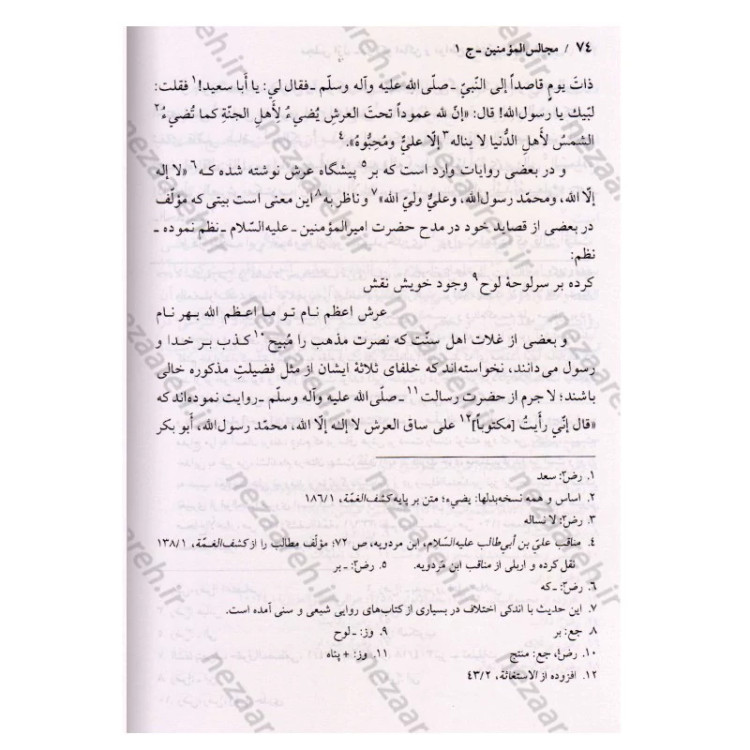 ۷۴ / مجالس‌المؤمنین ـ ج ۱
ذاتَ یومٍ قاصداً إلی النّبيّ ـ صلّی الله علیه وآله وسلّم ـ فقال لي: یا أبا سعید!۱ فقلت:
لبّیك یا رسول‌الله! قال: «إنّ لله عموداً تحتَ العرشِ یُضيءُ لأهلِ الجنّةِ کما تُضيءُ۲
الشمسُ لأهلِ الدُّنیا لا یناله۳ إلّا عليٌّ ومُحِبُّوهُ».۴
و در بعضی روایات وارد است که بر۵ پیشگاه عرش نوشته شده که۶ «لا إله
إلّا الله، ومحمّد رسول‌الله، وعليٌّ وليّ الله»۷ و ناظر به۸ این معنی است بیتی که مؤلّف
در بعضی از قصاید خود در مدح حضرت امیرالمؤمنین ـ علیه‌السّلام ـ نظم نموده ـ
نظم:
کرده بر سرلوحهٔ لوح۹ وجود خویش نقش
عرش اعظم نام تو ما اعظم الله بهر نام
و بعضی از غلات اهل سنّت که نصرت مذهب را مُبیح۱۰ کذب بر خدا و
رسول می‌دانند، نخواسته‌اند که خلفای ثلاثهٔ ایشان از مثل فضیلتِ مذکوره خالی
باشند؛ لا جرم از حضرت رسالت۱۱ ـ صلّی الله علیه وآله وسلّم ـ روایت نموده‌اند که
«قال إنّي رأیتُ [مکتوباً]۱۲ علی ساق العرش لا إله إلّا الله، محمّد رسول‌الله، أبو بکر
۱. رض۳: سعد
۲. اساس و همه نسخه‌بدلها: یضيء؛ متن بر پایه کشف‌الغمّة، ۱۸۶/۱
۳. رض۳: لا نساله
۴. مناقب عليّ بن أبي‌طالب علیه‌السّلام، ابن مردویه، ص ۷۲؛ مؤلّف مطالب را از کشف‌الغمّة، ۱۳۸/۱،
نقل کرده و اربلی از مناقب ابن مردویه. ۵. رض۳: ـ بر
۶. رض۳: ـ که
۷. این حدیث با اندکی اختلاف در بسیاری از کتاب‌های روایی شیعی و سنی آمده است.
۸. جع: بر ۹. وز: ـ لوح
۱۰. رض۲، جع: منتج ۱۱. وز: + پناه
۱۲. افزوده از الاستغاثة، ۴۳/۲
nezaareh.ir